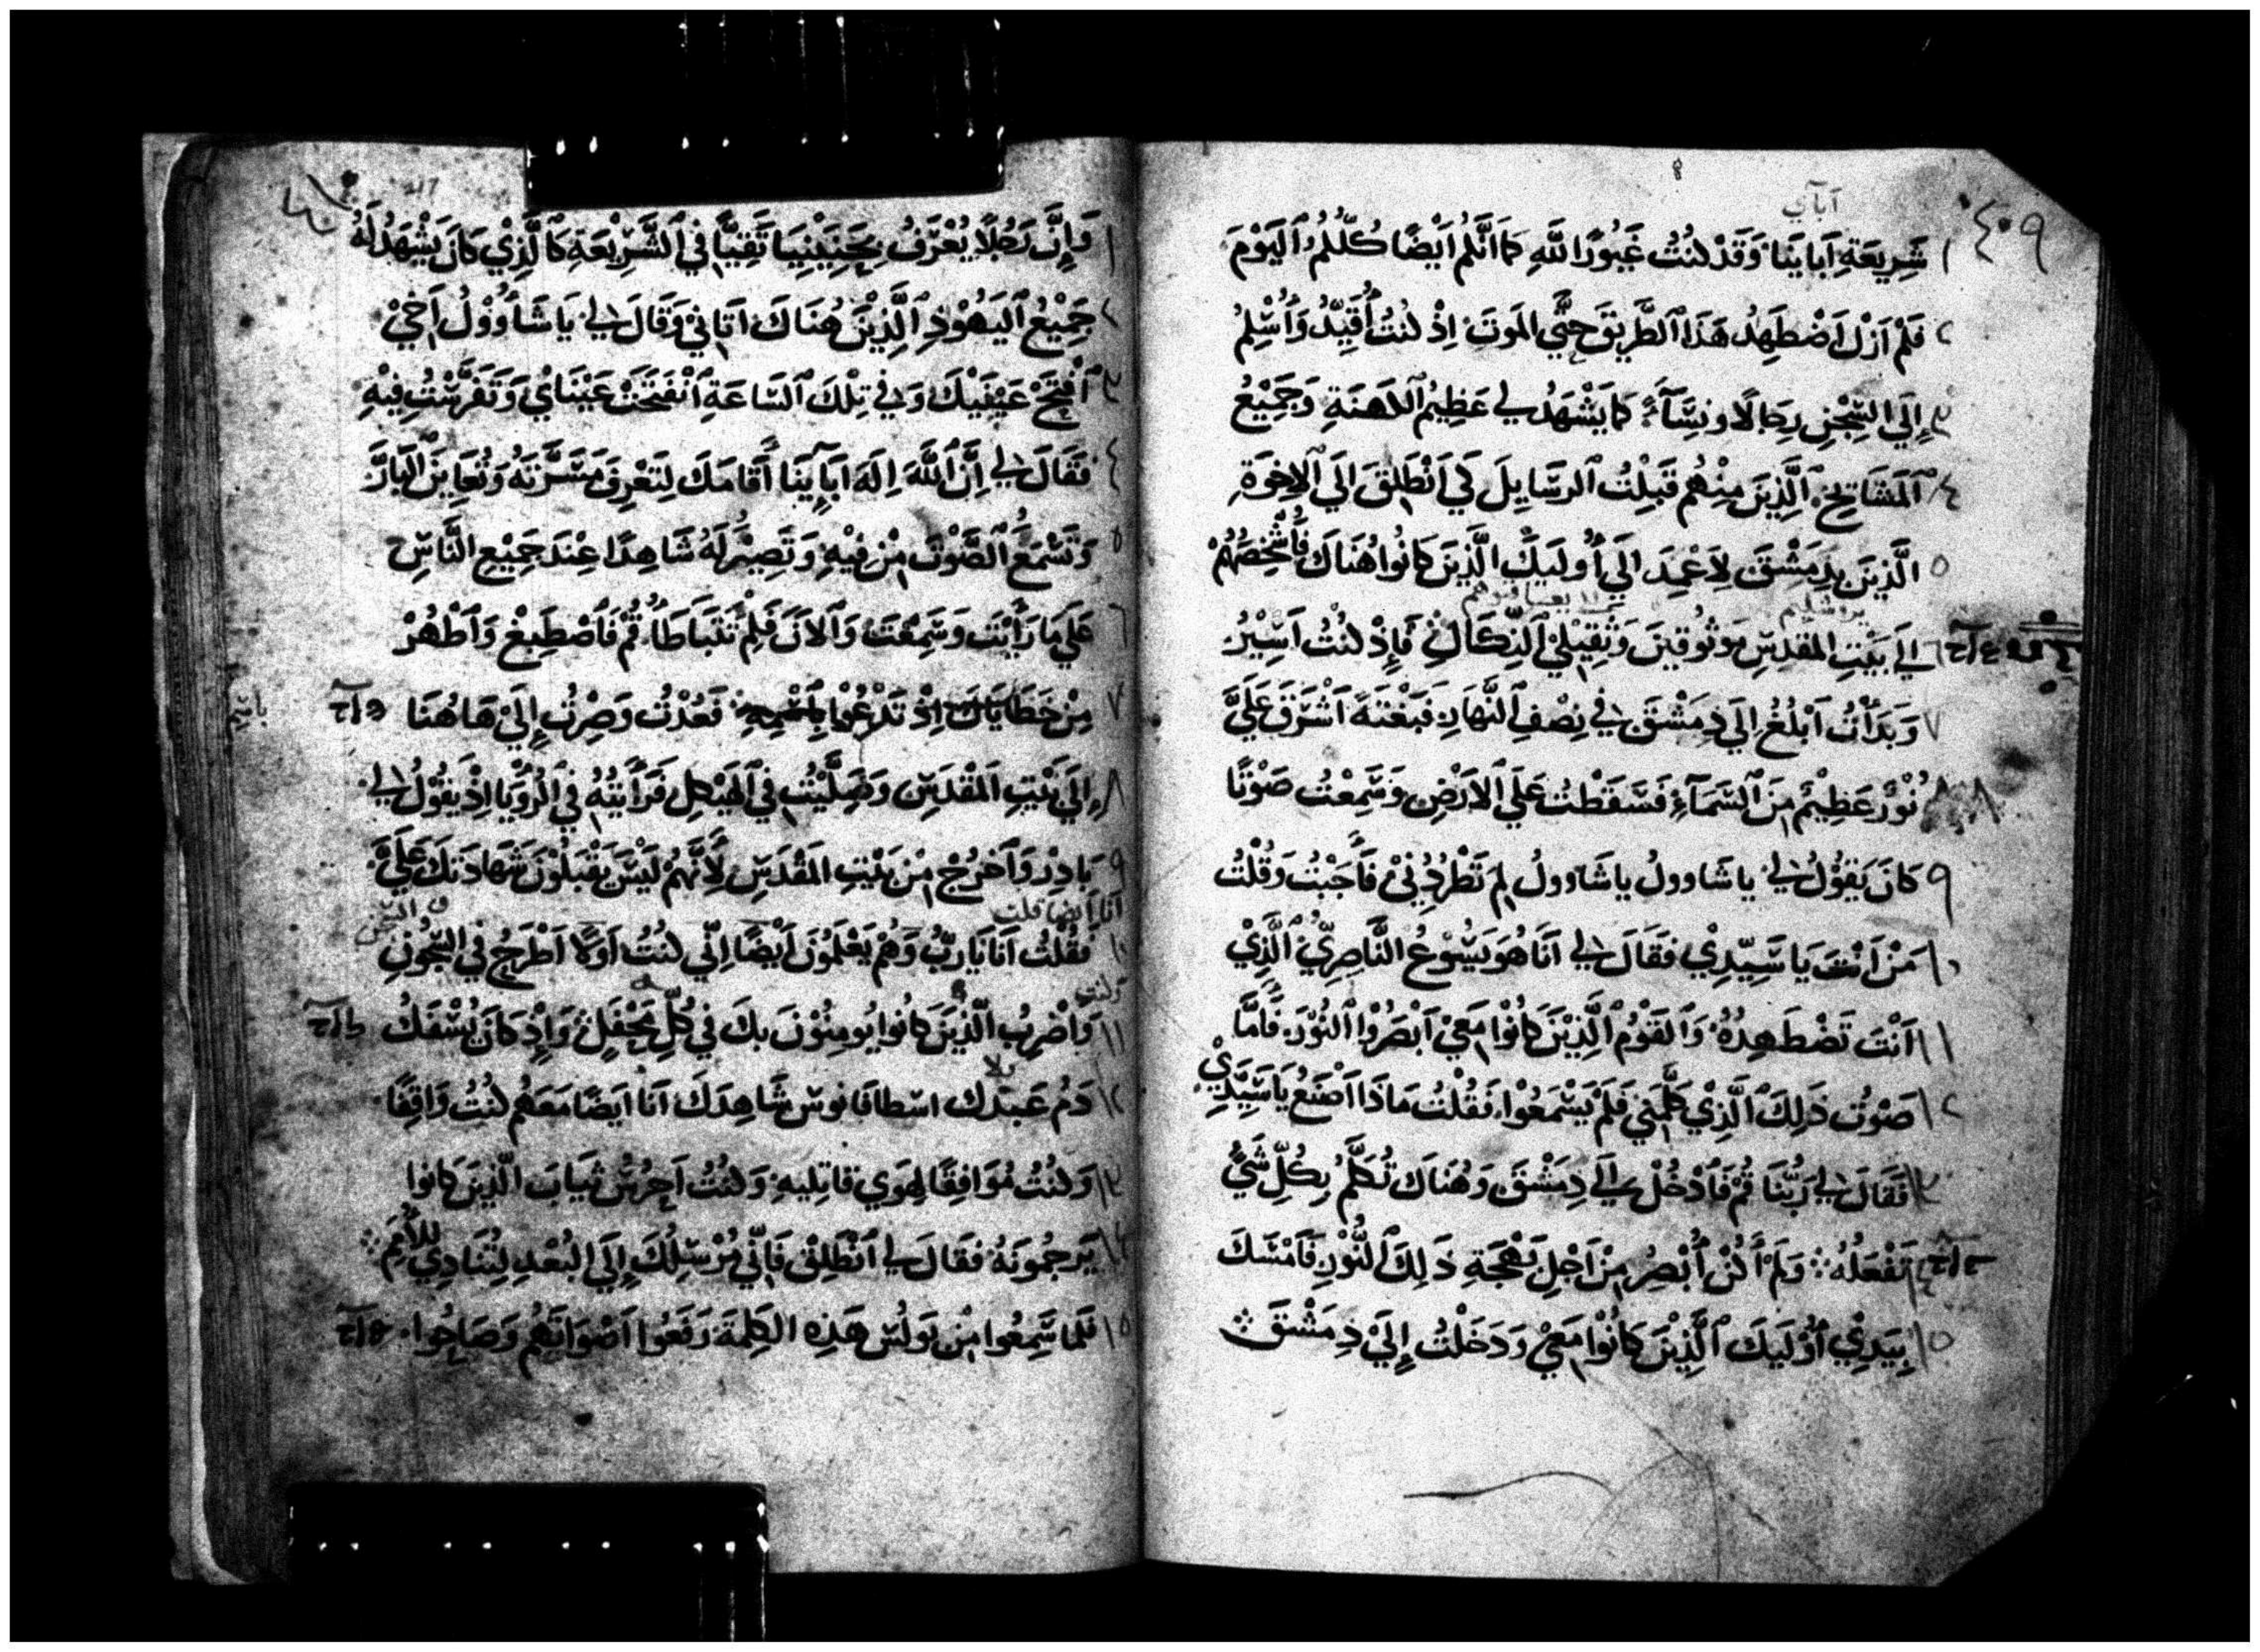 ٤٠٩
آبآي
١ شَرِيعَةِ اَبايَنَا وَقَدْ كنْتُ غَيُورًا للَّهِ كَمَا اَنَّكُم اَيْضًا كُلّكُمُ ٱليَوْمَ
٢ فَلَمْ اَزَلْ اَضْطَهِدُ هَذَا ٱلطَّرِيقَ حَتَّي المَوتَ اِذْ كنتُ اُقَيِّدُ وَاُسْلِمُ
٣ اِلَي السِّجْنِ رِجَالًا ونِسَّآءً كَمَا يَشْهَدُ لي عَظِيمُ ٱلكَهَنَةِ وَجَمِيْعُ
٤ ٱلمَشَايِخِ ٱلَّذِينَ مِنْهُم قَبِلْتُ ٱلرسَايِلَ كَي اَنْطَلِقَ اِلَي ٱلاِخوَةِ
٥ الَّذِينَ بِدِمَشْقَ لِاَعْمِدَ اِلَي اُولَيكَ الَّذِينَ كَانُوا هُنَاكَ فَاُشْخِصَهُمْ
يروشليم
٦ اِلَي بَيْتِ المَقدِسِ مَوثُوقِينَ وَيَقبَلُوا النِّكَالَ فَاِذْ كنْتُ اَسِيْرُ
٧ وَبَدَأتُ اَبْلُغُ اِلَي دِمَشْقَ في نِصْفِ ٱلنَّهَارِ فَبَغْتَةً اَشْرَقَ عَلَيَّ
٨ نُوْرٌ عَظِيْمٌ مِنَ ٱلسَّمَآءِ فَسَقَطْتُ عَلَي ٱلاَرْضِ وَسَمِعْتُ صَوْتًا
٩ كَانَ يَقُوْلُ لي يا شَاوولُ يا شَاوولُ لِمَ تَطْرُدُنِيْ فَأَجَبْتُ وَقُلْتُ
١٠ مَنْ اَنْتَ يَا سَيِّدِيْ فقَالَ لي اَنَا هُوَ يَسُوْعُ النَّاصِرِيّ ٱلَّذِيْ
١١ اَنْتَ تَضْطَهِدُهُ وَٱلقَوْمُ ٱلَّذِيْنَ كَانُوْا مَعِيْ اَبْصَرُوْا ٱلنُوْرَ فَأَمَّا
١٢ صَوْتُ ذَلِكَ ٱلَّذِيْ كَلَّمَنِي فَلَمْ يَسْمَعُوْا فَقُلْتُ مَاذَا اَصْنَعُ يَا سَيِّدِيْ
١٣ فَقَالَ لي رَبُّنَا قُمْ فَٱدْخُلْ اِلَي دِمَشْقَ وَهُنَاكَ تُكَلَّمُ بِكُلِّ شَيْءٍ
١٤ تَفْعَلُهُ وَلَمْ أَكُنْ اُبْصِرُ مِنْ اَجْلِ بَهْجَةِ ذَلِكَ ٱلنُّوْرِ فَاَمْسَكَ
١٥ بِيَدِيْ اُوْلَيكَ ٱلَّذِيْنَ كَانُوْا مَعِيْ وَدَخَلْتُ اِلَيْ دِمَشْقَ
١ وَاِنَّ رَجُلًا يُعْرَفُ بِحَنِيْنِيَا تَقِيًّا في ٱلشَّرِيْعَةِ كَٱلَّذِيْ كَانَ يَشْهَدُ لَهُ
٢ جَمِيْعُ ٱليَهُوْدِ ٱلَّذِيْنَ هُنَاكَ اَتَاني وَقَالَ لي يَا شَاُوْوْلُ اَخِيْ
٣ ٱفْتَحْ عَيْنَيْكَ وَفي تِلْكَ ٱلسَّاعَةِ ٱنْفَتَحَتْ عَيْنَايَ وَتَفَرَّسْتُ فِيْهِ
٤ فَقَالَ لي اِنَّ ٱللَّهَ اِلَهَ اَبَآيِنَا أَقَامَكَ لِتَعْرِفَ مَسَرَّتَهُ وَتُعَايِنَ ٱلبَارَّ
٥ وَتَسْمَعَ ٱلصَّوْتَ مِنْ فِيْهِ وَتَصِيْرَ لَهُ شَاهِدًا عِنْدَ جَمِيْعِ النَّاسِ
٦ عَلَي مَا رَأَيْتَ وَسَمِعْتَ وَٱلاَنَ فَلِمَ تَتَبَاطَا قُمْ فَٱصْطَبِغْ وَٱطْهُرْ
٧ مِنْ خَطَايَاكَ اِذْ تَدْعُوْا بِٱسْمِهِ فَعُدْتُ وَصِرْتُ اِلَيْ هَاهُنَا
باسم
٨ اِلَي بَيْتِ ٱلمَقْدِسِ وَصَلَّيْتُ في ٱلهَيْكلِ فَرَأَيْتُهُ في ٱلرُوْيَا اِذْ يَقُوْلُ لي
٩ بَادِرْ وَٱخْرُجْ مِنْ بَيْتِ المَقْدَسِ لِأَنَّهُمْ لَيْسَ يَقْبَلُوْنَ شَهَادَتكَ عَلَيَّ
انا ايضا قلت في السجن
١٠ فَقُلْتُ اَنَا يَا رَبُّ وَهُمْ يَعْلَمُوْنَ اَيْضًا اِنّي كنْتُ اَوَّلًا اَطْرَحُ في السّجُونِ
١١ وَاَضْرِبُ الَّذِيْنَ كَانُوا يُومِنُوْنَ بِكَ في كُلِّ مَحْفِلٍ وَاِذْ كَانَ يُسْفَكُ
١٢ دَمُ عَبدِك اسطافانوس شَاهِدَكَ اَنَا اَيضًا مَعَهُم كنْتُ وَاقِفًا
١٣ وَكنْتُ مُوَافِقًا لِهَوَي قاتِليهِ وَكنْتُ اَحرُسُ ثيَابَ الَّذِينَ كانُوا
١٤ يَرجُمُونَهُ فقَالَ لي ٱنْطَلِقْ فَاِنّي مُرْسِلُكَ اِلَي البُعْدِ لِتُنَادِيْ للأُمَمِ
١٥ فَلَما سَمِعُوا مِنْ بَولُسَ هَذِهِ الكَلِمَةَ رَفَعُوا اَصْوَاتَهُم وَصَاحُوا